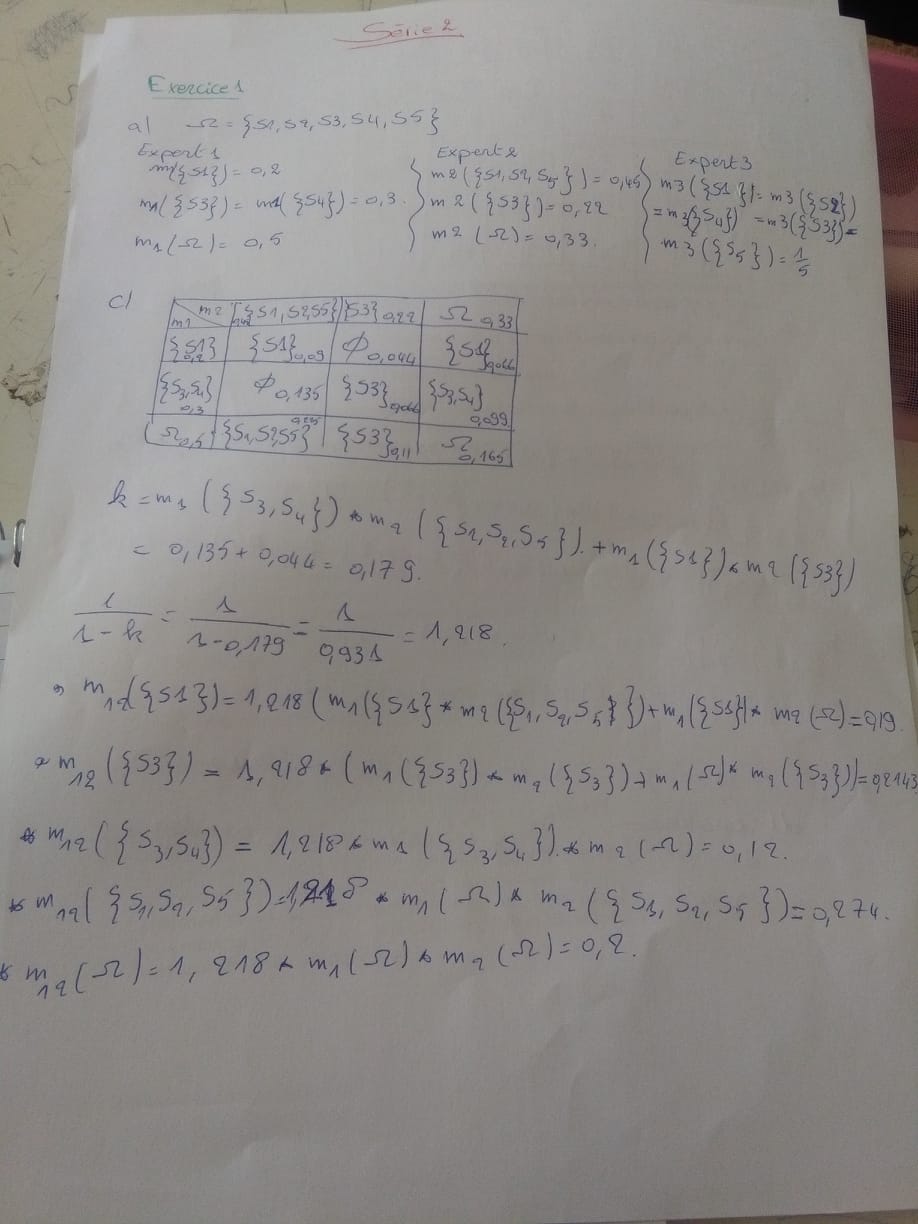 Série 2
Exercice 1
a) Ω = {S1, S2, S3, S4, S5}
Expert 1
m1({S1}) = 0,2
m1({S3}) = m1({S4}) = 0,3.
m1(Ω) = 0,5
Expert 2
m2({S1, S2, S5}) = 0,45
m2({S3}) = 0,22
m2(Ω) = 0,33.
Expert 3
m3({S1}) = m3({S2})
= m3({S4}) = m3({S3}) =
m3({S5}) = 1/5
c)
m1 m2 {S1, S2, S5} {S3} 0,22 Ω 0,33
{S1} 0,2 {S1} 0,09 Φ 0,044 {S1} 0,066
{S3, S4} 0,3 Φ 0,135 {S3} 0,066 {S3, S4} 0,099
Ω 0,5 {S1, S2, S5} 0,225 {S3} 0,11 Ω 0,165
k = m1({S3, S4}) * m2({S1, S2, S5}) + m1({S1}) * m2({S3})
= 0,135 + 0,044 = 0,179.
1/(1-k) = 1/(1-0,179) = 1/0,931 = 1,218.
m12({S1}) = 1,218 (m1({S1} * m2({S1, S2, S5}}) + m1({S1}) * m2(Ω) = 0,19.
* m12({S3}) = 1,218 * (m1({S3}) * m2({S3}) + m1(Ω) * m2({S3})) = 0,2143
* m12({S3, S4}) = 1,218 * m1({S3, S4}) * m2(Ω) = 0,12.
* m12({S1, S2, S5}) = 1,218 * m1(Ω) * m2({S1, S2, S5}) = 0,274.
* m12(Ω) = 1,218 * m1(Ω) * m2(Ω) = 0,2.